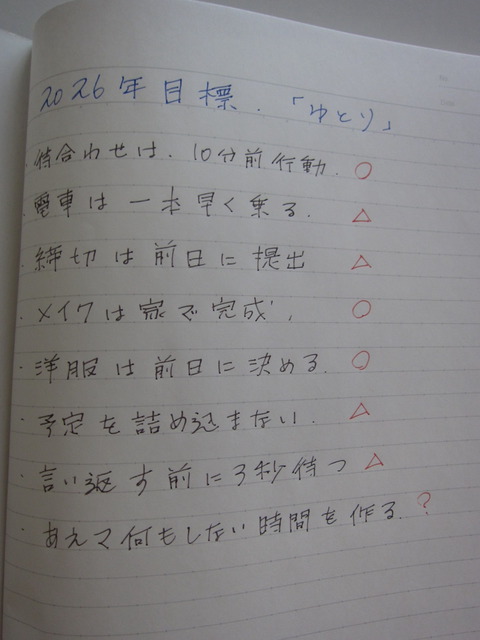 2026年目標.「ゆとり」
・待合わせは、10分前行動. ○
・電車は一本早く乗る. △
・締切は前日に提出 △
・メイクは家で完成、 ○
・洋服は前日に決める. ○
・予定を詰め込まない. △
・言い返す前に3秒待つ △
・あえて何もしない時間を作る. ?